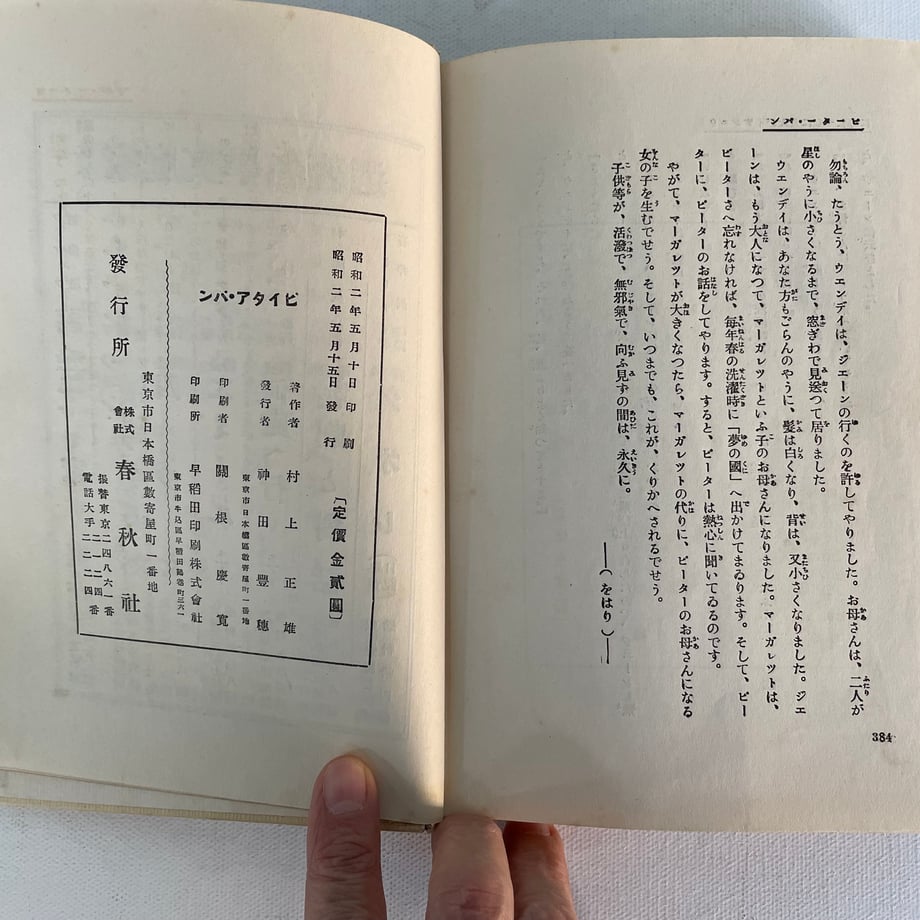 ピーター・パン
勿論、たうとう、ウエンデイは、ジエーンの行くのを許してやりました。お母さんは、二人が
星のやうに小さくなるまで、窓ぎわで見送つて居りました。
ウエンデイは、あなた方もごらんのやうに、髪は白くなり、背は、又小さくなりました。ジエ
ーンは、もう大人になつて、マーガレツトといふ子のお母さんになりました。マーガレツトは、
ピーターさへ忘れなければ、毎年春の洗濯時に「夢の國」へ出かけてまゐります。そして、ピー
ターに、ピーターのお話をしてやります。すると、ピーターは熱心に聞いてゐるのです。
やがて、マーガレツトが大きくなつたら、マーガレツトの代りに、ピーターのお母さんになる
女の子を生むでせう。そして、いつまでも、これが、くりかへされるでせう。
子供等が、活潑で、無邪氣で、向ふ見ずの間は、永久に。
――(をはり)――
384
昭和二年五月十日印刷
昭和二年五月十五日發行
〔定價金貳圓〕
ピイタア・パン
著作者 村上正雄
發行者 神田豐穗
東京市日本橋區數寄屋町一番地
印刷者 關根慶寛
印刷所 早稻田印刷株式會社
東京市牛込區早稻田鶴卷町三六一
發行所
東京市日本橋區數寄屋町一番地
株式會社 春秋社
振替東京二四八六一番
電話大手二一二四番
二二二四番